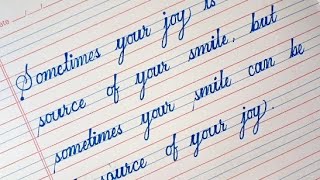 Sometimes your joy is
source of your smile, but
sometimes your smile can be
source of your joy.